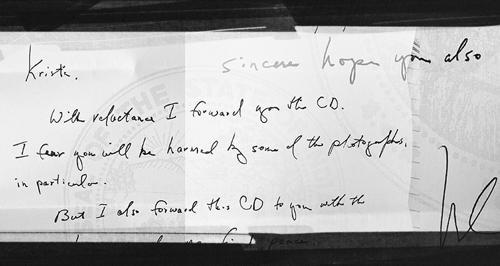 Krista.
sincere hope you also
With reluctance I forward you the CD.
I fear you will be harmed by some of the photographs,
in particular.
But I also forward this CD to you with the
peace